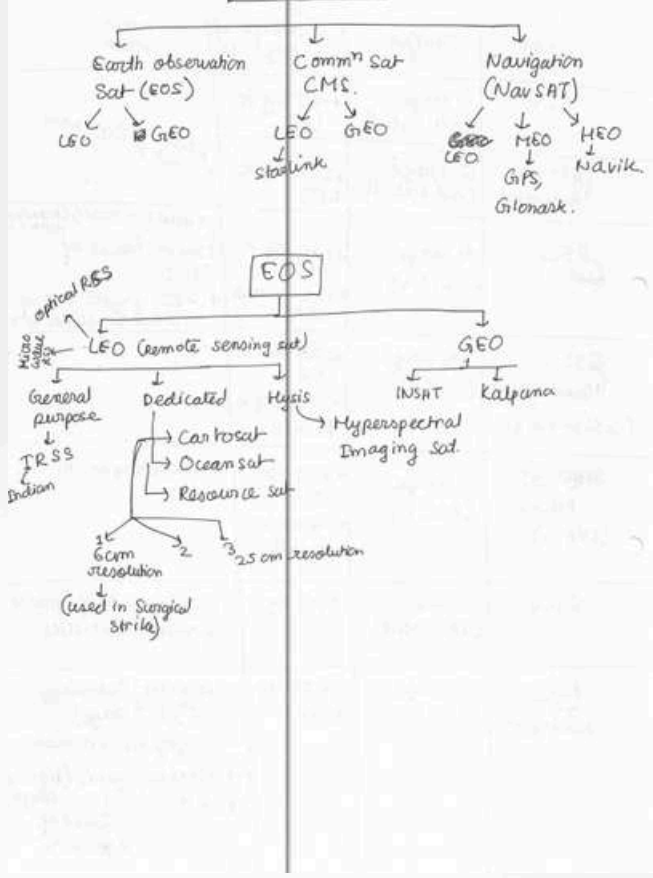 Earth observation
Sat (EOS)
LEO
GEO
Commⁿ Sat
CMS.
LEO
GEO
Starlink
Navigation
(NavSAT)
LEO
MEO
HEO
GPS,
Glonask.
Navik.
EOS
Optical RSS
LEO (remote sensing sat)
GEO
General
purpose
IRSS
Indian
Dedicated
Cartosat
Ocean sat
Resource sat
Hysis
Hyperspectral
Imaging Sat.
INSAT
Kalpana
1
6cm
resolution
(used in Surgical
Strike)
2
3
25 cm resolution